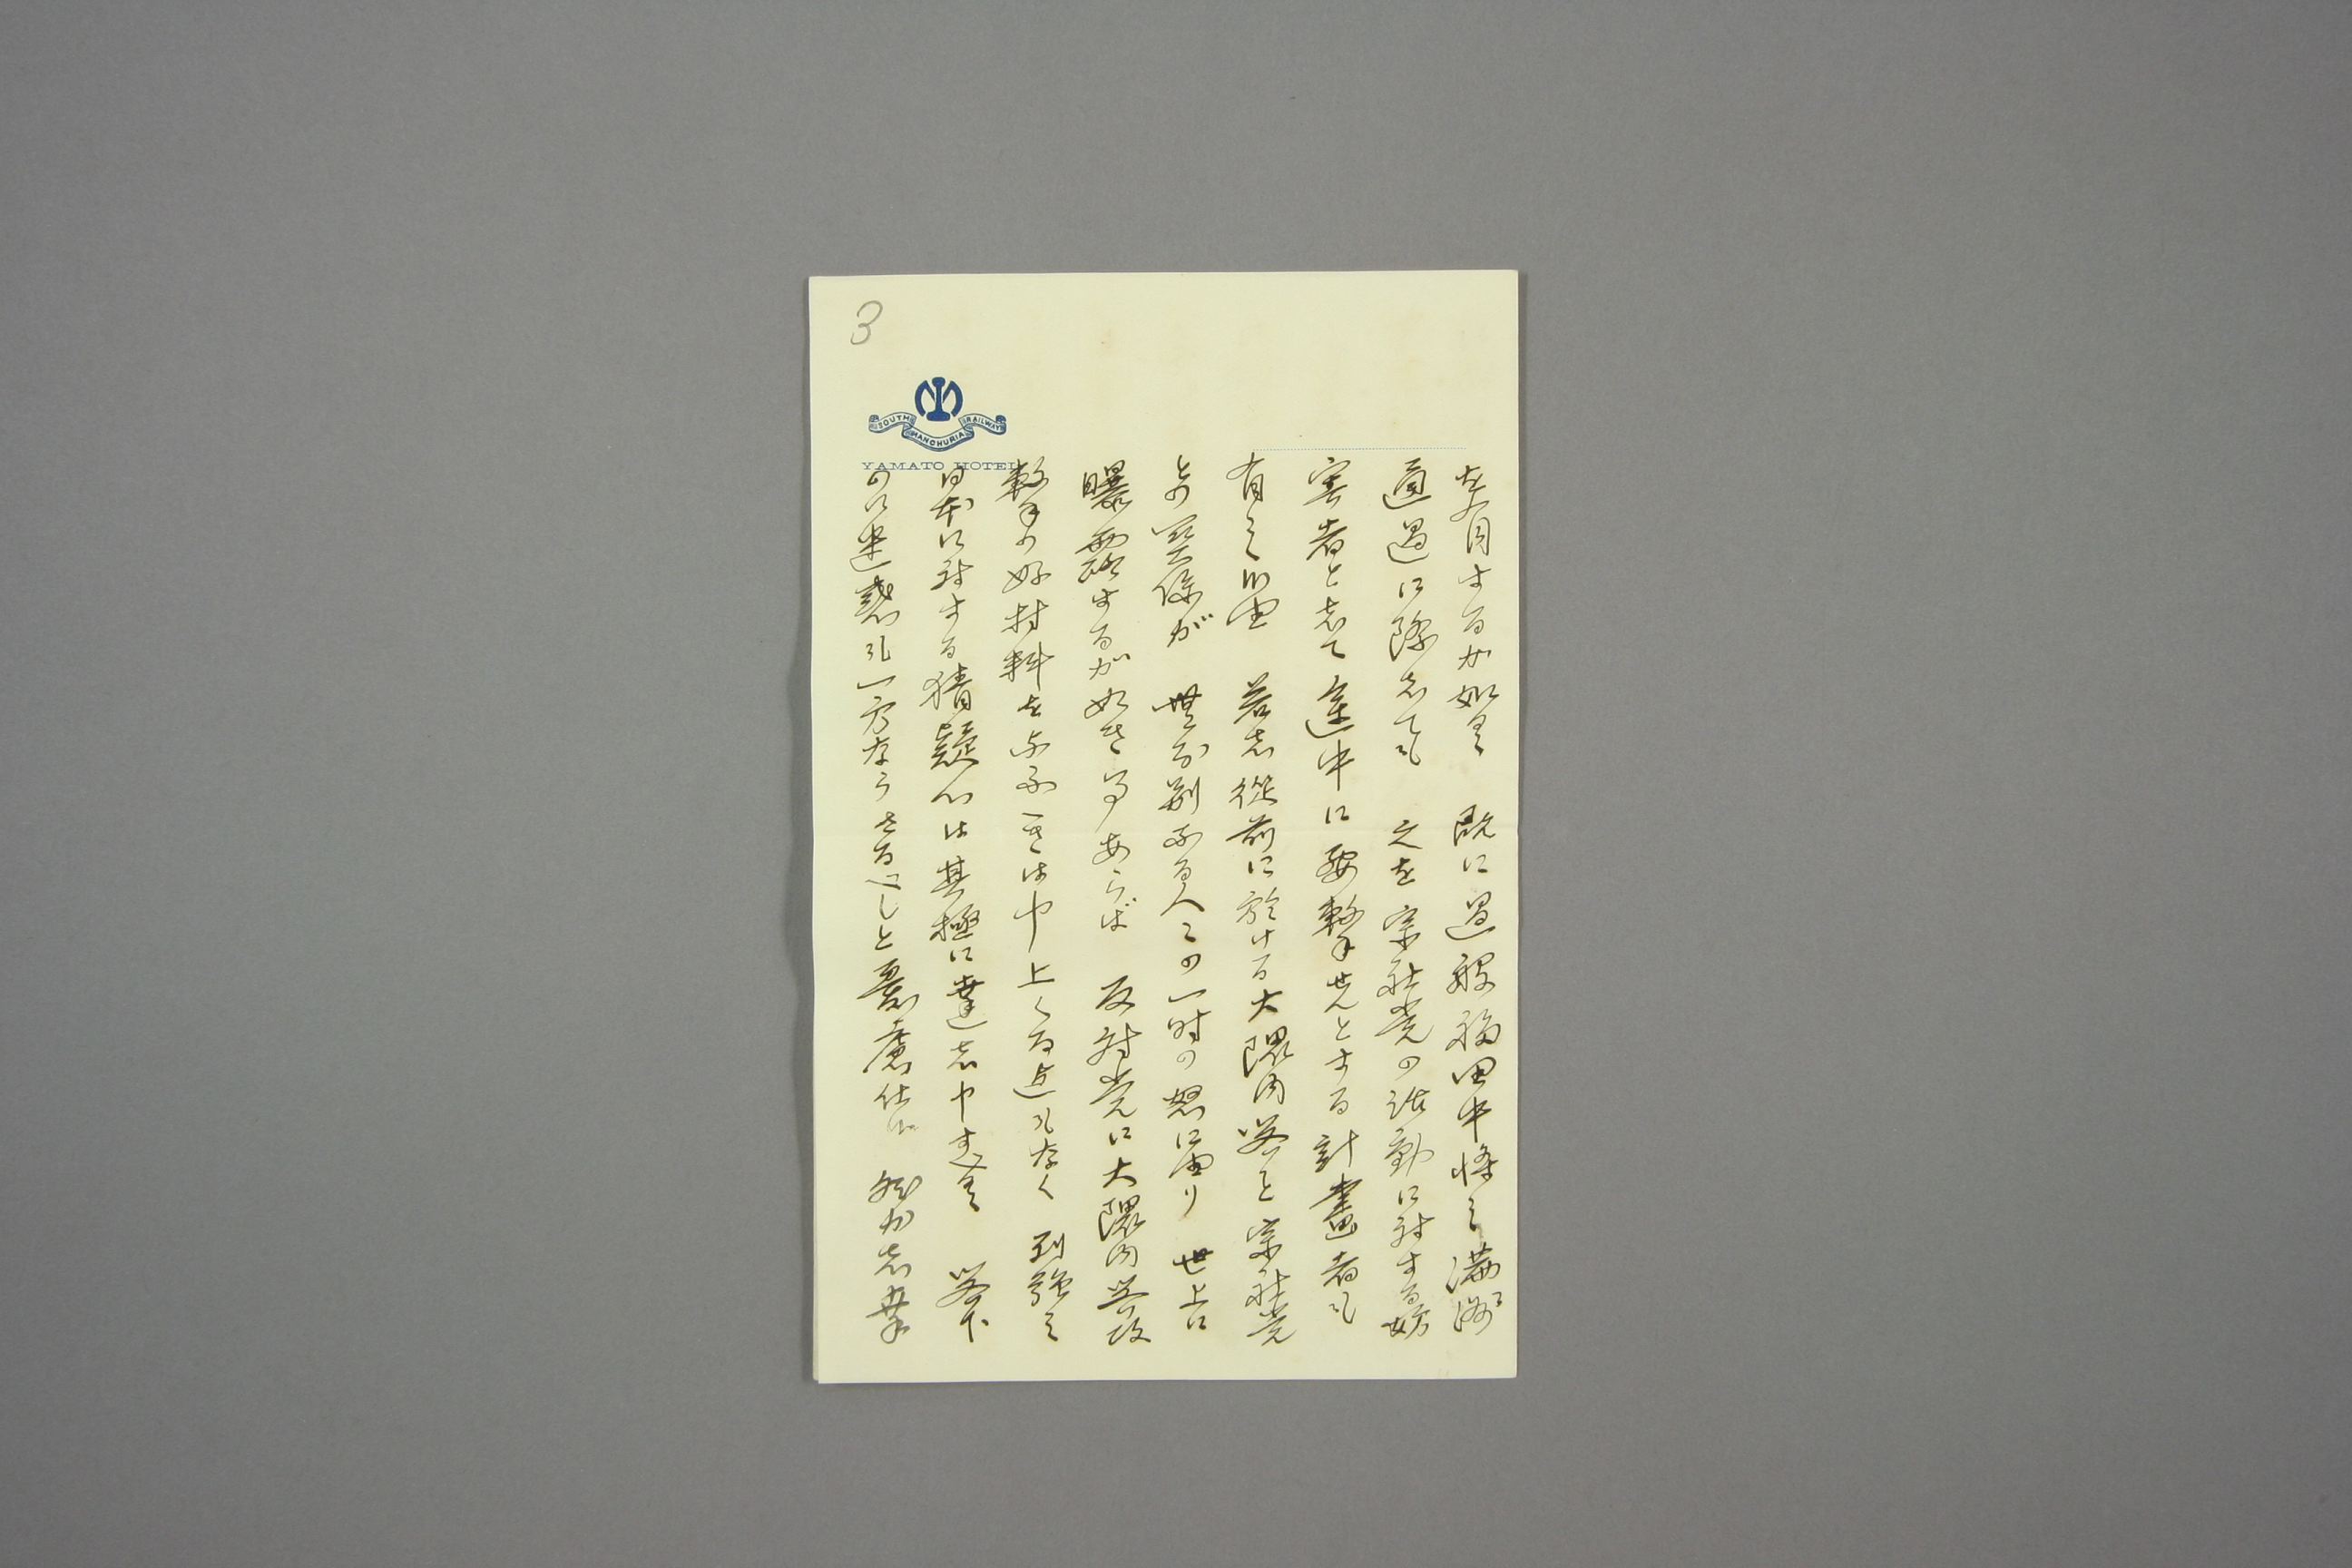 3
SOUTH MANCHURIA RAILWAY
YAMATO HOTEL
を有するか如く 既に過般 田中 之満洲
通過に際しても 之を宗社党の活動に対する妨
害者として途中に要撃せんとする計畫者も
有之 若し従前に於ける大隈内閣と宗社党
との関係が 無分別なる人々の一時の怒に由り 世上に
曝露するが如き事あらば 反対党に大隈内閣攻
撃の好材料を与ふべきは申上くる迄もなく 列強之
日本に対する猜疑心は其極に達し申すべく 閣下
の御迷惑も一方ならさるべしと憂慮仕候 然かし業